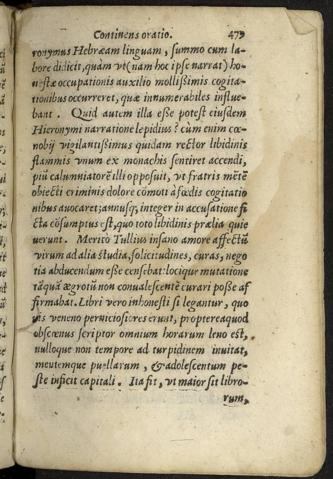 Continens oratio. 479
ronymus Hebræam linguam, summo cum la-
bore didicit, quàm vt (nam hoc ipse narrat) ho-
nestæ occupationis auxilio mollissimis cogita-
tionibus occurreret, quæ innumerabiles influe-
bant. Quid autem illa esse potest eiusdem
Hieronymi narratione lepidius? cùm enim cœ-
nobij vigilantissimus quidam rector libidinis
flammis vnum ex monachis sentiret accendi,
piũ calumniatorẽ illi opposuit, vt fratris mẽtẽ
obiecti criminis dolore cõmotã à fœdis cogitatio
nibus auocaret; annusq; integer in accusatione fi
cta cõsumptus est, quo toto libidinis prælia quie
uerunt. Meritò Tullius insano amore affectũ
virum ad alia studia, solicitudines, curas, nego
tia abducendum esse censebat: lociq́ue mutatione
tãquã ægrotũ non conualescentẽ curari posse af
firmabat. Libri vero inhonesti si legantur, quo
uis veneno perniciosiores erunt, propterea quod
obscœnus scriptor omnium horarum leno est,
nulloque non tempore ad turpidinem inuitat,
meutemque puellarum, & adolescentum pe-
ste inficit capitali. Ita fit, vt maior sit libro-
rum,